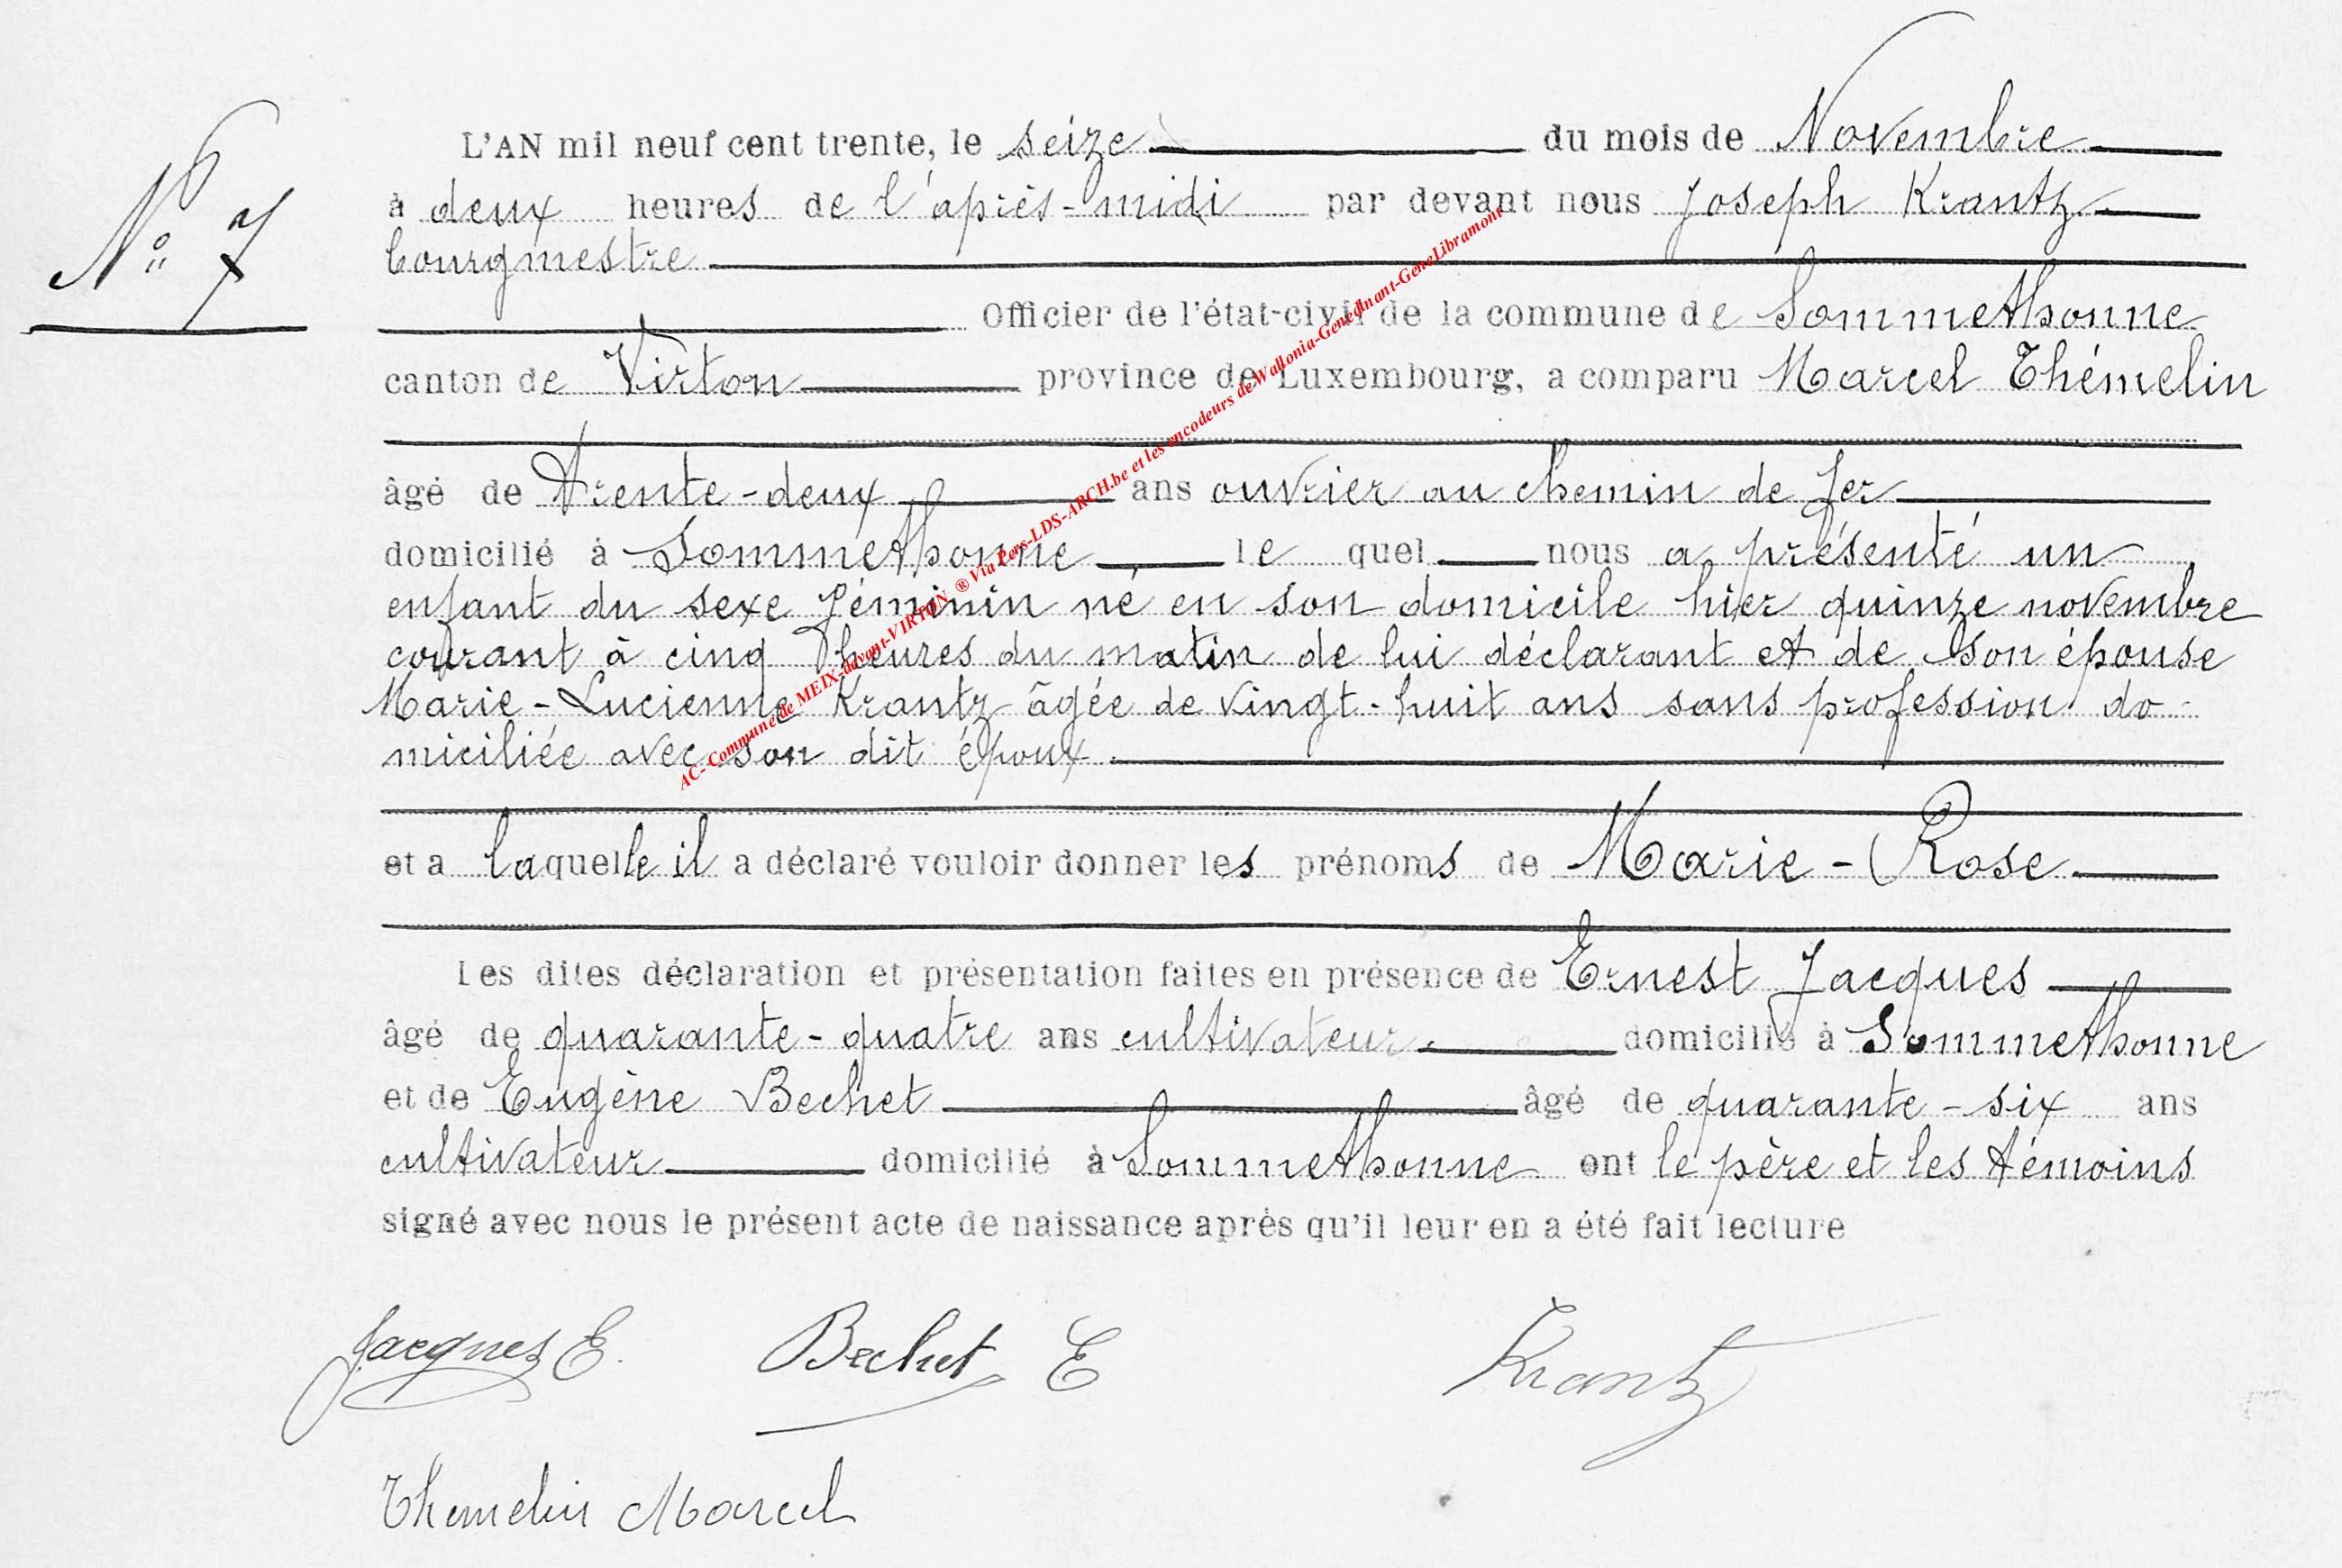 N° 7
L'AN mil neuf cent trente, le seize du mois de Novembre
à deux heures de l'après-midi par devant nous Joseph Krantz
bourgmestre
Officier de l'état-civil de la commune de Sommethonne
canton de Virton province de Luxembourg, a comparu Marcel Thémelin
âgé de trente-deux ans ouvrier au chemin de fer
domicilié à Sommethonne le quel nous a présenté un
enfant du sexe féminin né en son domicile hier quinze novembre
courant à cinq heures du matin de lui déclarant et de son épouse
Marie-Lucienne Krantz âgée de vingt-huit ans sans profession do-
miciliée avec son dit époux.
et a laquelle il a déclaré vouloir donner les prénoms de Marie-Rose
Les dites déclaration et présentation faites en présence de Ernest Jacques
âgé de quarante-quatre ans cultivateur domicilié à Sommethonne
et de Eugène Bechet âgé de quarante-six ans
cultivateur domicilié à Sommethonne ont le père et les témoins
signé avec nous le présent acte de naissance après qu'il leur en a été fait lecture
Jacques E. Bechet E Krantz
Themelin Marcel
AC-Commune de MEIX-devant-VIRTON ® Via Pers-LDS-ARCH.be et les encodeurs de Wallonia-Genedinant-GeneLibramont